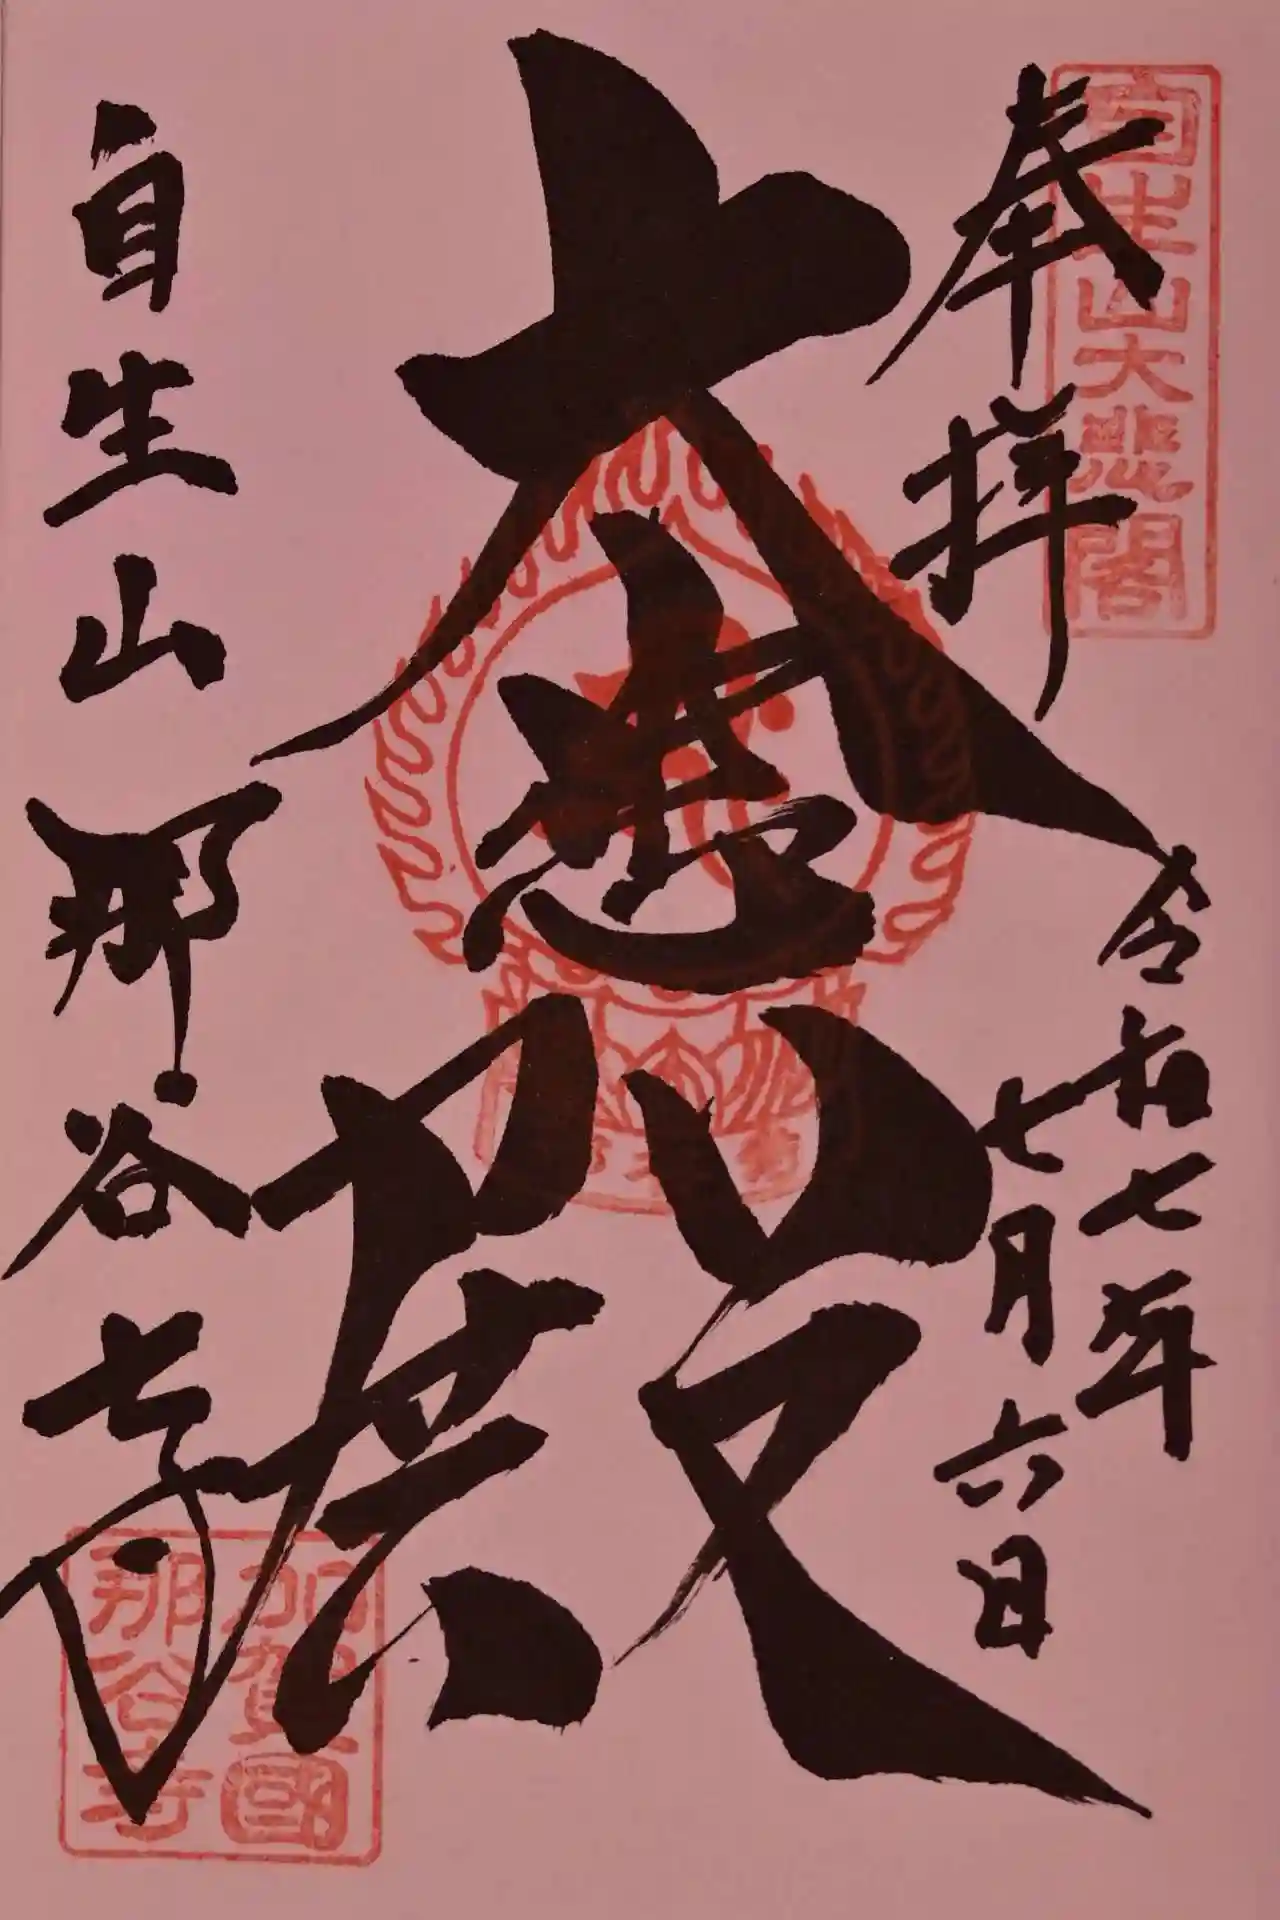 奉拝
自生山大悲閣
令和七年
七月六日
大悲殿
自生山
那谷寺
加賀國
那谷寺